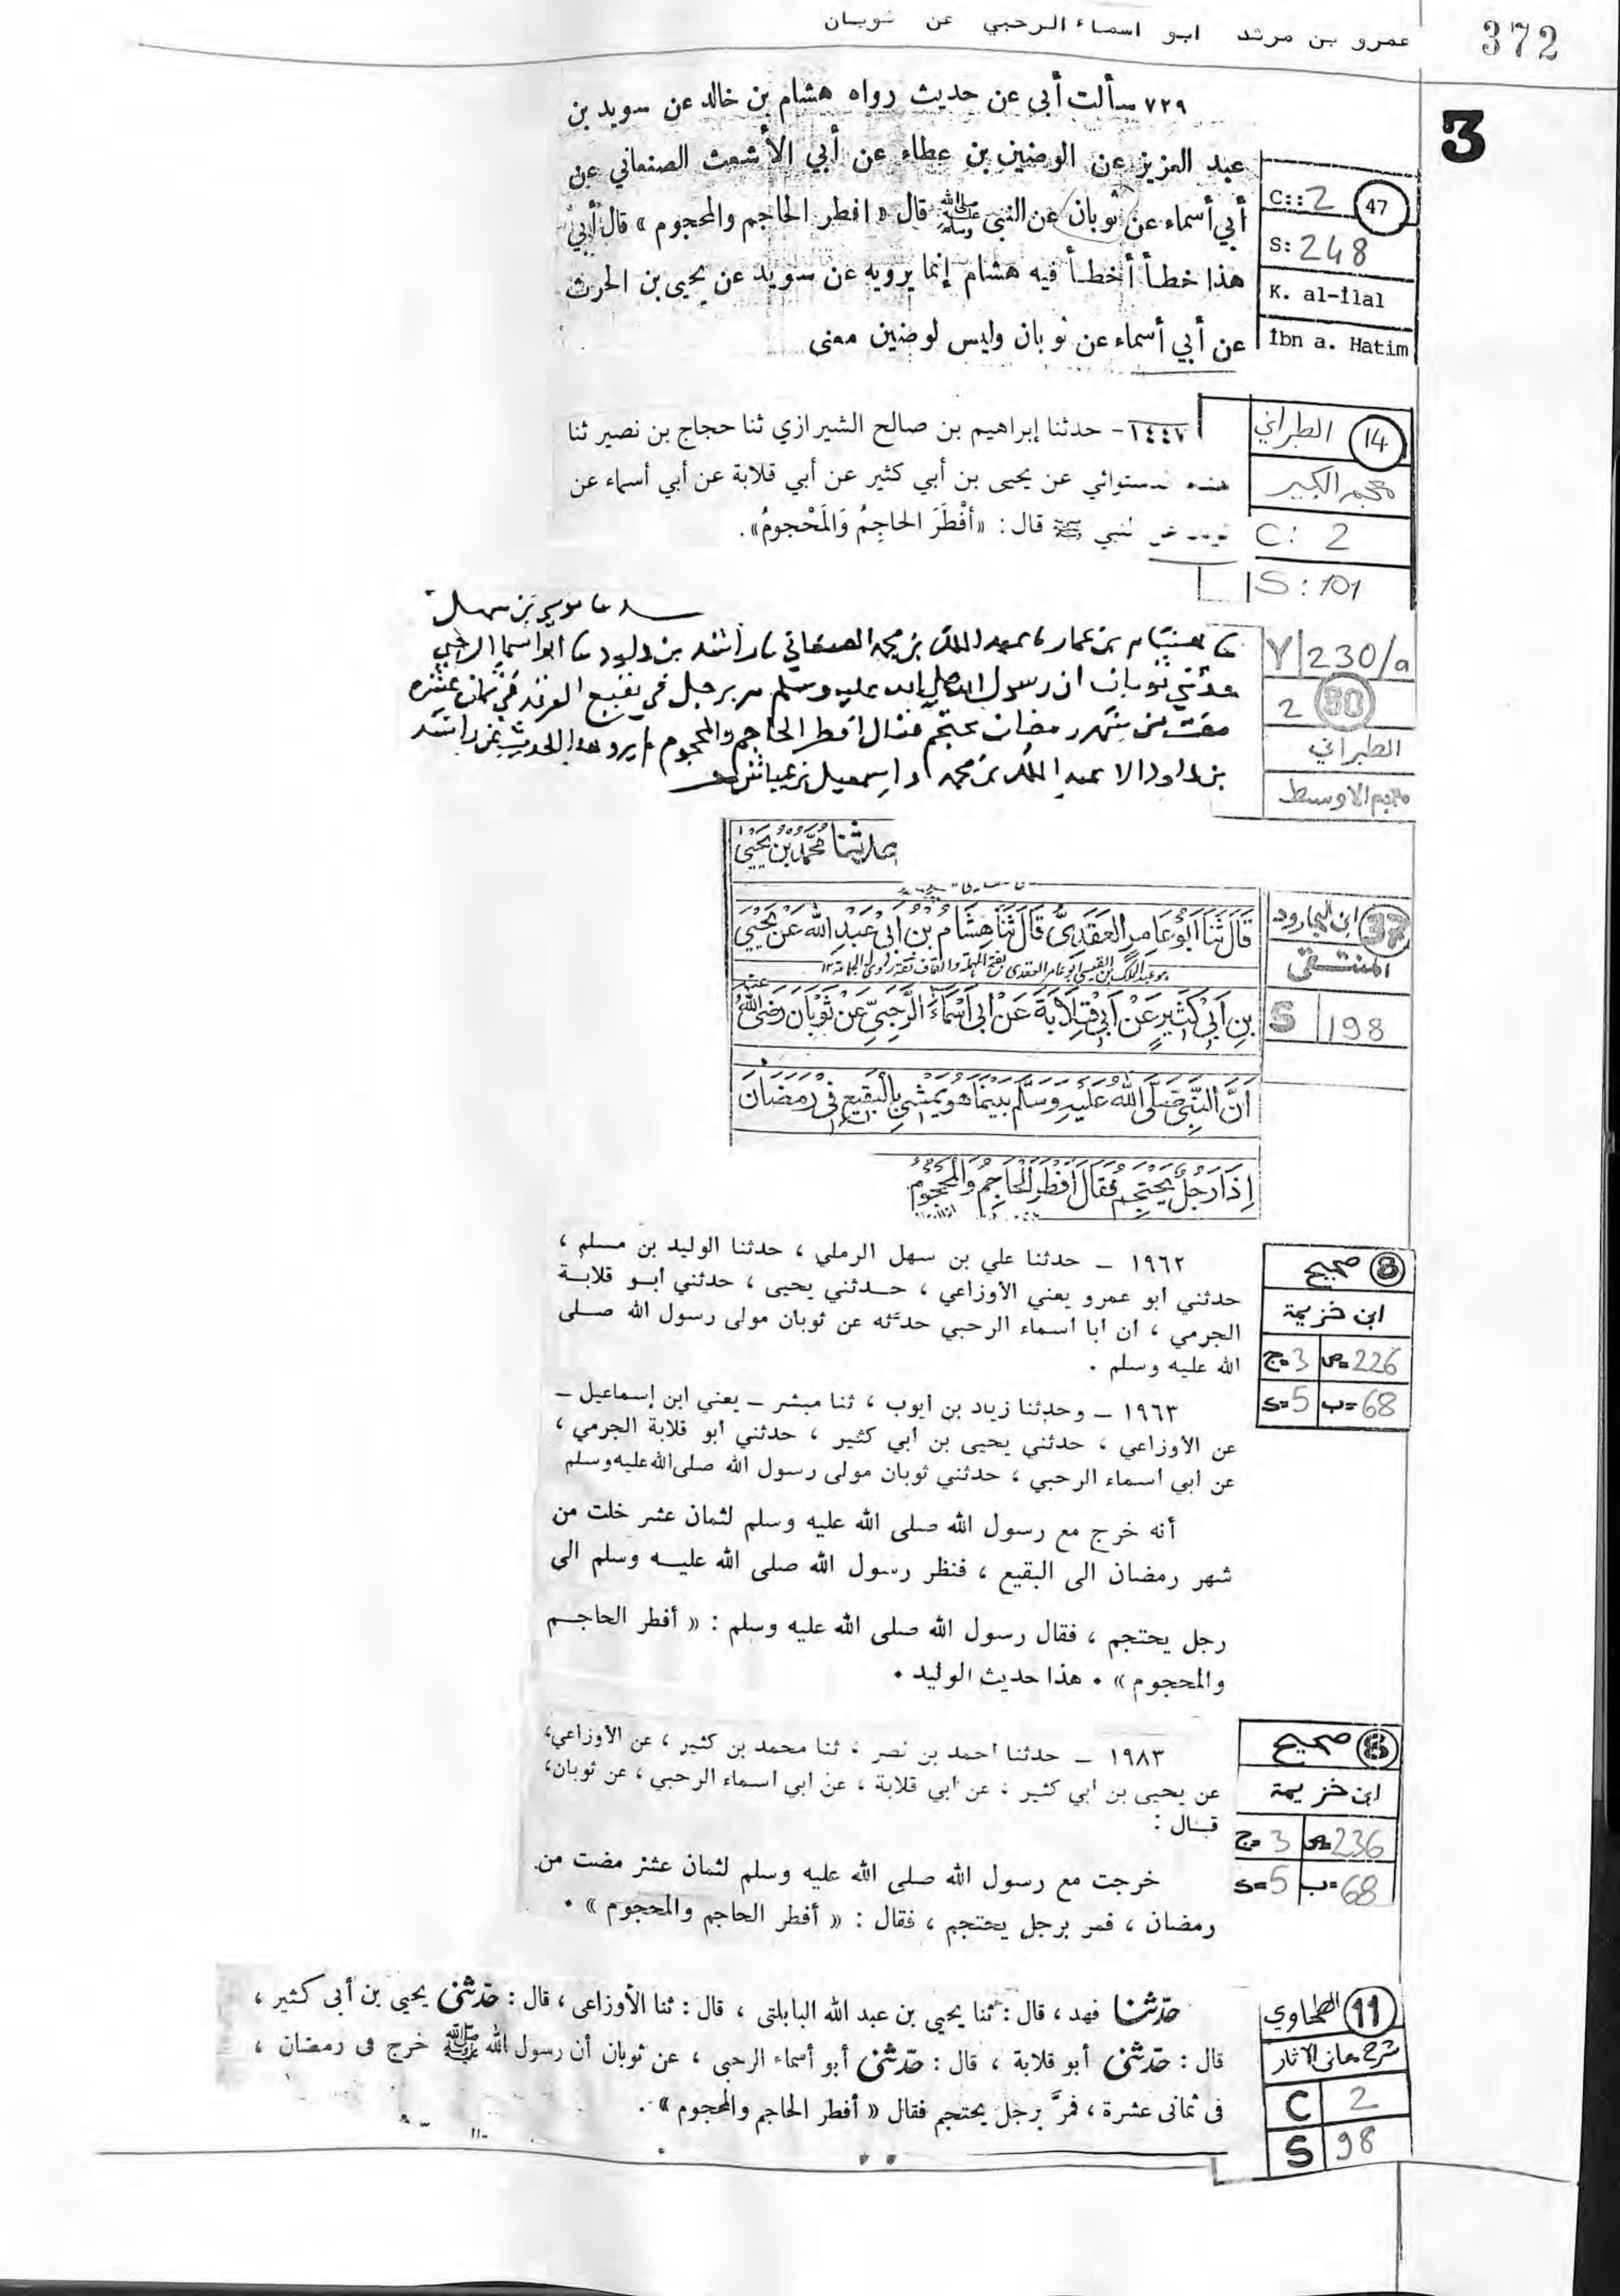 372
عمرو بن مرثد ابو اسماء الرحبي عن ثوبان
3
٧٢٩ سألت أبي عن حديث رواه هشام بن خالد عن سويد بن
عبد العزيز عن الوضين بن عطاء عن أبي الأشعث الصنعاني عن
أبي أسماء عن ثوبان عن النبي ﷺ قال « افطر الحاجم والمحجوم » قال أبي
هذا خطأ أخطأ فيه هشام إنما يرويه عن سويد عن يحيى بن الحرث
عن أبي أسماء عن ثوبان وليس لوضين معنى
47
C:: 2
S: 248
K. al-İlal
İbn a. Hatim
١٤٤٧ - حدثنا إبراهيم بن صالح الشيرازي ثنا حجاج بن نصير ثنا
دستوائي عن يحيى بن أبي كثير عن أبي قلابة عن أبي أسماء عن
عن النبي ﷺ قال : «أَفْطَرَ الحاجِمُ وَالمَحْجومُ» .
14 الطبراني
معجم الكبير
C: 2
S: 101
حدثنا موسى بن سهل
نا هشام بن عمار نا عبد الملك بن محمد الصنعاني نا راشد بن داود نا ابو اسما الرحبي
حدثني ثوبان ان رسول الله صلى الله عليه وسلم مر برجل في بقيع الغرقد في ثمان عشره
مضت من شهر رمضان يحتجم فقال افطر الحاجم والمحجوم لم يرو هذا الحديث عن راشد
بن داود الا عبد الملك بن محمد و اسمعيل بن عياش
Y 230/a
2 50
الطبراني
معجم الاوسط
حدثنا محمد بن يحيى
قَالَ ثَنَا أَبُو عَامِرِ العَقَدِىُّ قَالَ ثَنَا هِشَامُ بْنُ أَبِى عَبْدِ اللَّه عَنْ يَحْيَى
بْنِ أَبِى كَثِيرٍ عَنْ أَبِى قِلَابَةَ عَنْ أَبِى أَسْمَاءَ الرَّحَبِىِّ عَنْ ثَوْبَان رضى اللهُ عنه
أَنَّ النَّبِىَّ صَلَّى اللهُ عَلَيْهِ وَسَلَّم بَيْنَمَا هُوَ يَمْشِي بِالْبَقِيعِ فِى رَمَضَانَ
إِذَا رَجُلٌ يَحْتَجِمُ فَقَالَ أَفْطَرَ الْحَاجِمُ وَالْمَحْجُومُ
37 ابن الجارود
المنتقى
S 198
١٩٦٢ - حدثنا علي بن سهل الرملي ، حدثنا الوليد بن مسلم ،
حدثني أبو عمرو يعني الأوزاعي ، حدثني يحيى ، حدثني أبو قلابة
الجرمي ، أن أبا أسماء الرحبي حدثه عن ثوبان مولى رسول الله صلى
الله عليه وسلم .
١٩٦٣ - وحدثنا زياد بن أيوب ، ثنا مبشر - يعني ابن إسماعيل -
عن الأوزاعي ، حدثني يحيى بن أبي كثير ، حدثني أبو قلابة الجرمي ،
عن أبي أسماء الرحبي ، حدثني ثوبان مولى رسول الله صلى الله عليه وسلم
أنه خرج مع رسول الله صلى الله عليه وسلم لثمان عشر خلت من
شهر رمضان الى البقيع ، فنظر رسول الله صلى الله عليه وسلم الى
رجل يحتجم ، فقال رسول الله صلى الله عليه وسلم : « أفطر الحاجم
والمحجوم » . هذا حديث الوليد .
8 صحيح
ابن خزيمة
ج=3 ص=226
s=5 ب=68
١٩٨٣ - حدثنا أحمد بن نصر ، ثنا محمد بن كثير ، عن الأوزاعي،
عن يحيى بن أبي كثير ، عن أبي قلابة ، عن أبي أسماء الرحبي ، عن ثوبان،
قال :
خرجت مع رسول الله صلى الله عليه وسلم لثمان عشر مضت من
رمضان ، فمر برجل يحتجم ، فقال : « أفطر الحاجم والمحجوم » .
8 صحيح
ابن خزيمة
ج=3 ص=236
s=5 ب=68
حدثنا فهد ، قال : ثنا يحيى بن عبد الله البابلتى ، قال : ثنا الأوزاعى ، قال : حدثنى يحيى بن أبى كثير ،
قال : حدثنى أبو قلابة ، قال : حدثنى أبو أسماء الرحبى ، عن ثوبان أن رسول الله ﷺ خرج فى رمضان ،
فى ثمانى عشرة ، فمرَّ برجل يحتجم فقال « أفطر الحاجم والمحجوم » .
11 الطحاوي
شرح معاني الآثار
C 2
S 98